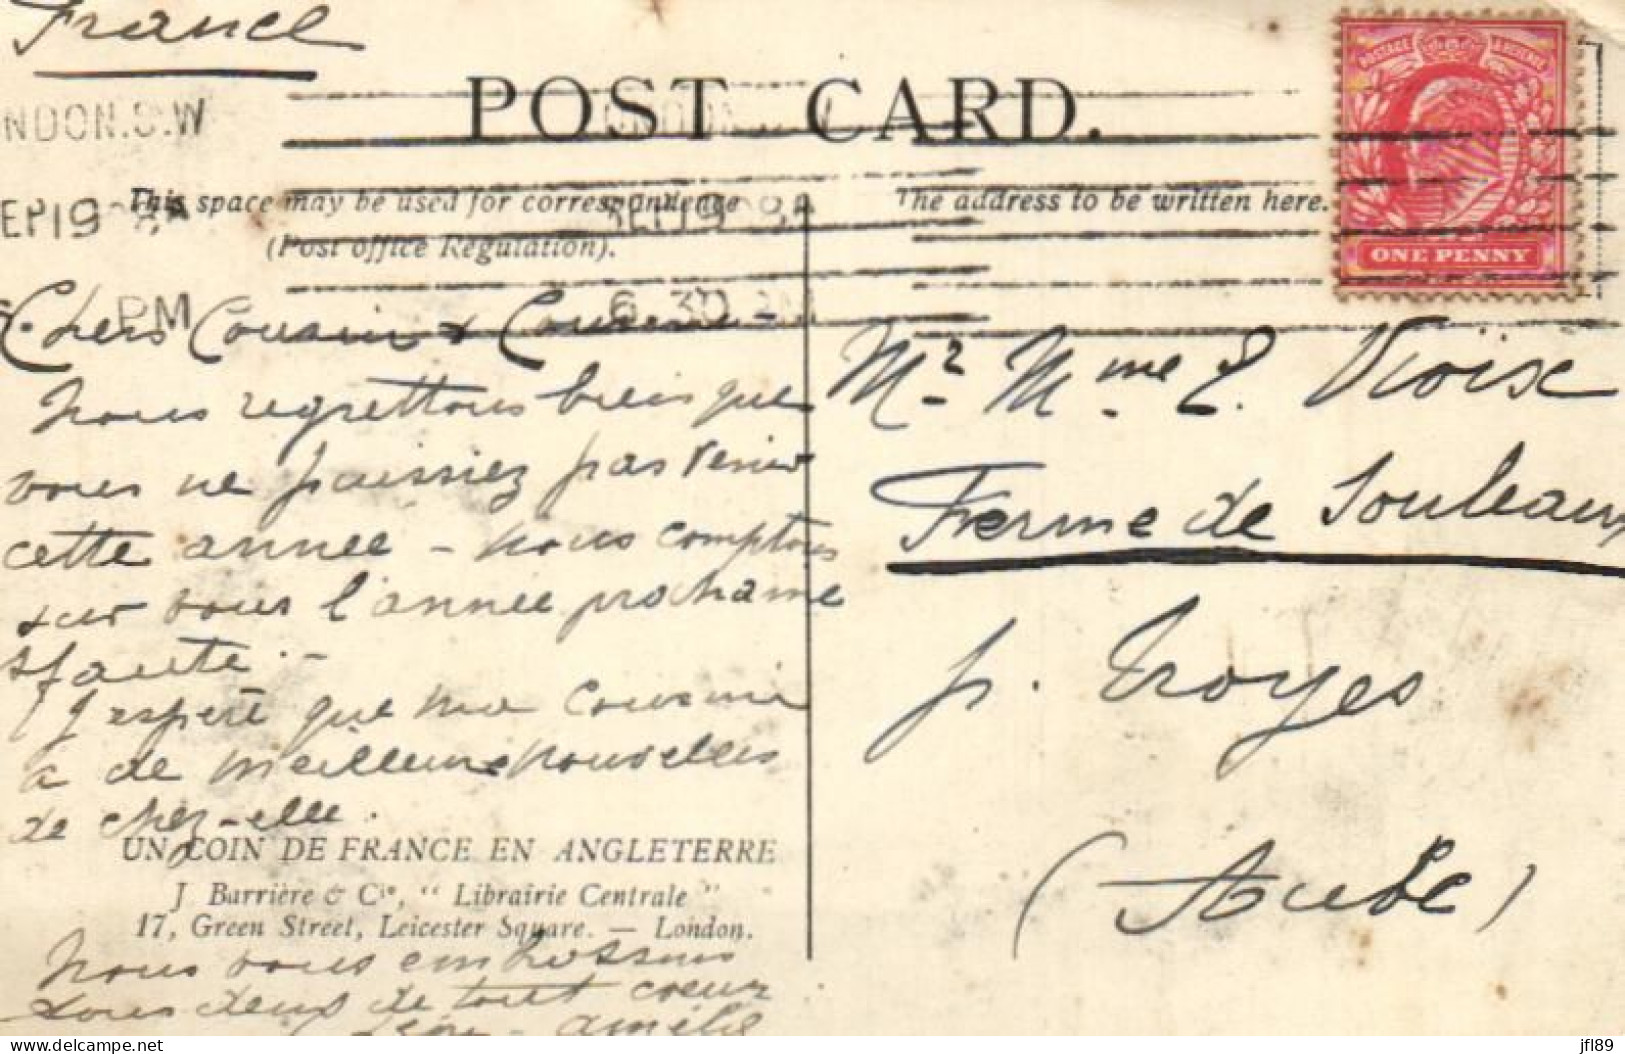 France
POST CARD.
NDON.S.W
EP 19
PM
6 30 PM
This space may be used for correspondence
(Post office Regulation).
The address to be written here.
POSTAGE & REVENUE
ONE PENNY
Chers Cousin & Cousine -
nous regrettons bien que
vous ne puissiez pas venir
cette année - nous comptons
sur vous l'année prochaine
s/faute. -
J'espère que ma cousine
a de meilleures nouvelles
de chez-elle.
UN COIN DE FRANCE EN ANGLETERRE
J Barrière & Cie, " Librairie Centrale "
17, Green Street, Leicester Square. — London.
Nous vous embrassons
tous deux de tout coeur
Amélie
Mr Mme E.
Ferme de Souleaux
p. Troyes
(Aube)
jfl89